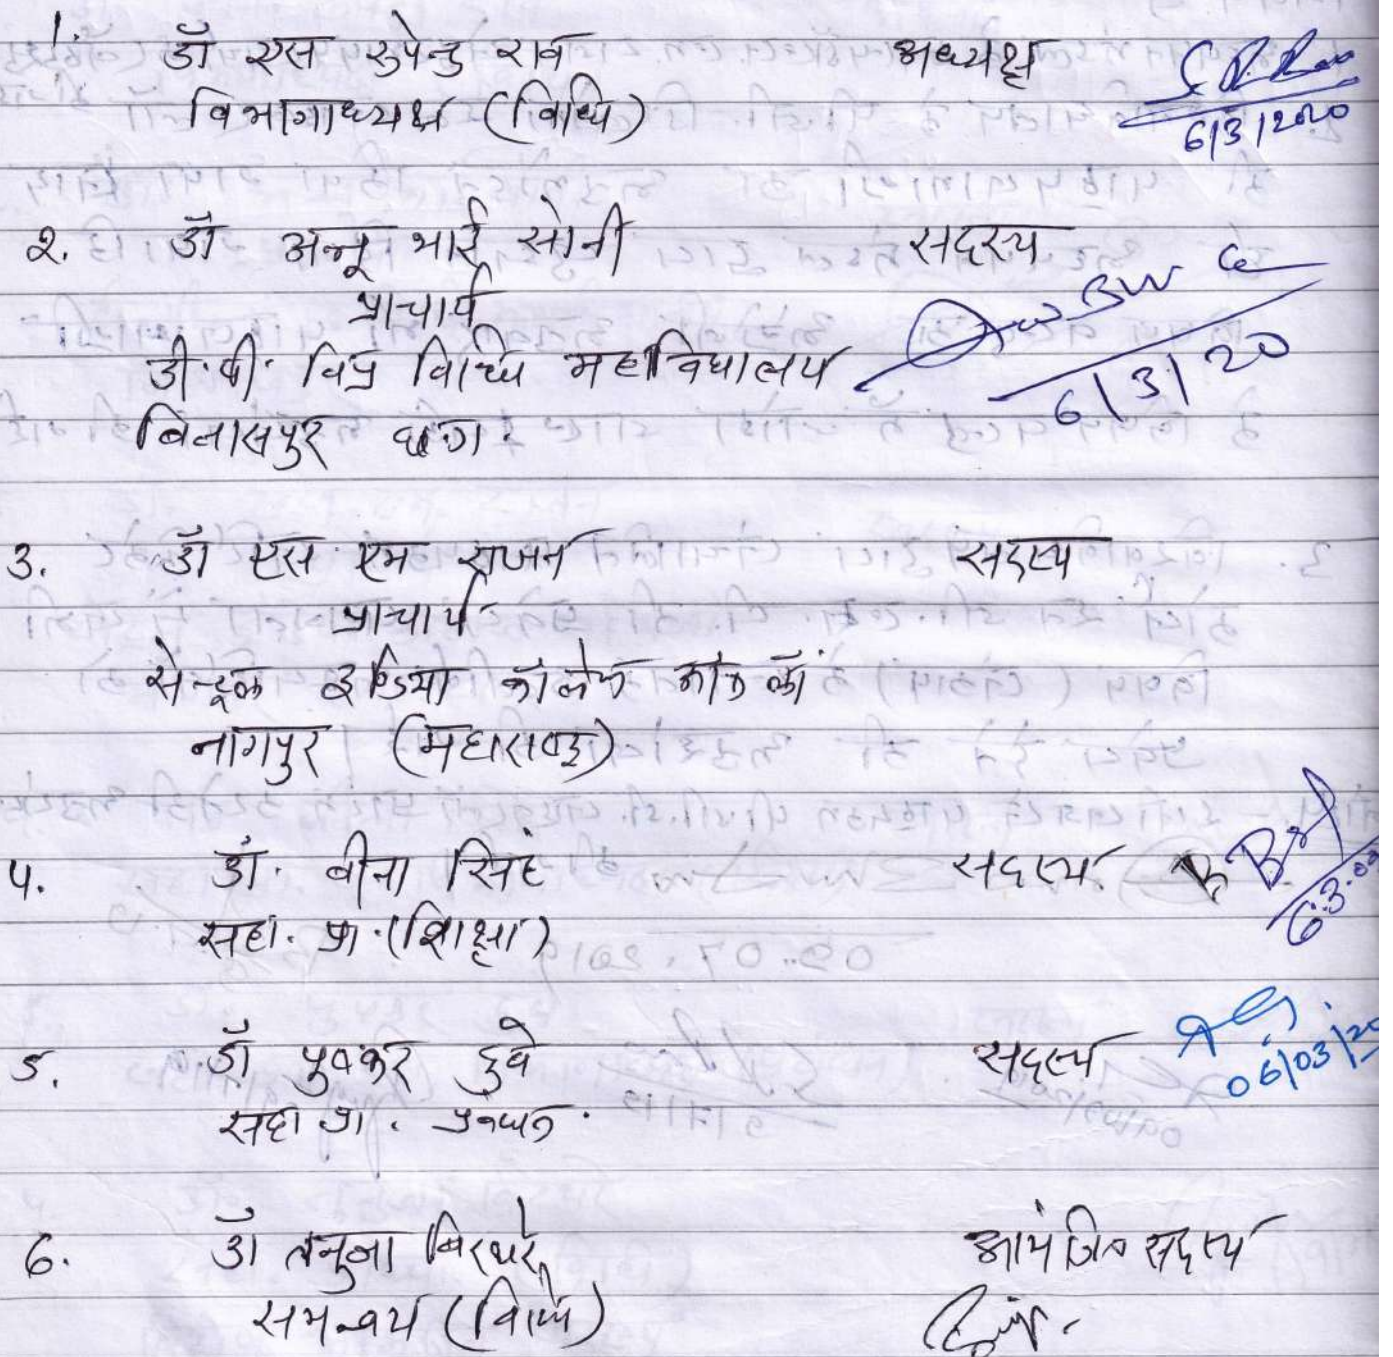 1. डॉ एस रुपेन्द्र राव अध्यक्ष
विभागाध्यक्ष (विधि)
6/3/2020
2. डॉ अन्नू भाई सोनी सदस्य
प्राचार्य
डी.पी. विप्र विधि महाविद्यालय
6/3/20
बिलासपुर छ.ग.
3. डॉ एस. एम राजन सदस्य
प्राचार्य
सेन्ट्रल इण्डिया कॉलेज ऑफ लॉ
नागपुर (महाराष्ट्र)
4. डॉ. वीना सिंह सदस्य
सहा. प्रा. (शिक्षा)
5. डॉ पुष्कर दुबे सदस्य
06/03/20
सहा प्रा. प्रबंधन.
6. डॉ तनुजा बिरथरे आमंत्रित सदस्य
समन्वय (विधि)